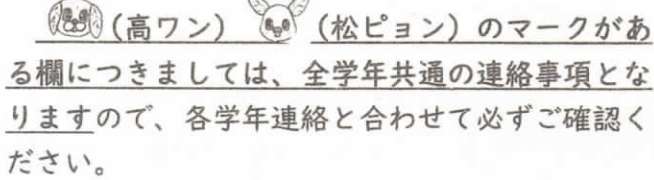 (高ワン) (松ピョン)のマークがあ
る欄につきましては、全学年共通の連絡事項とな
りますので、各学年連絡と合わせて必ずご確認く
ださい。